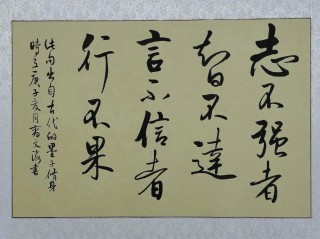 志不强者
智不達
言不信者
行不果
此句出自古代的墨子修身
時在庚子亥月文海書